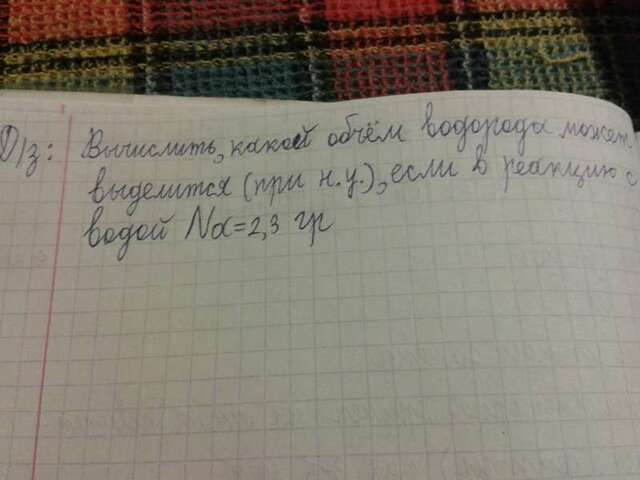 Д/з: Вычислить, какой объём водорода может
выделится (при н.у.), если в реакцию с
водой Na=2,3 гр